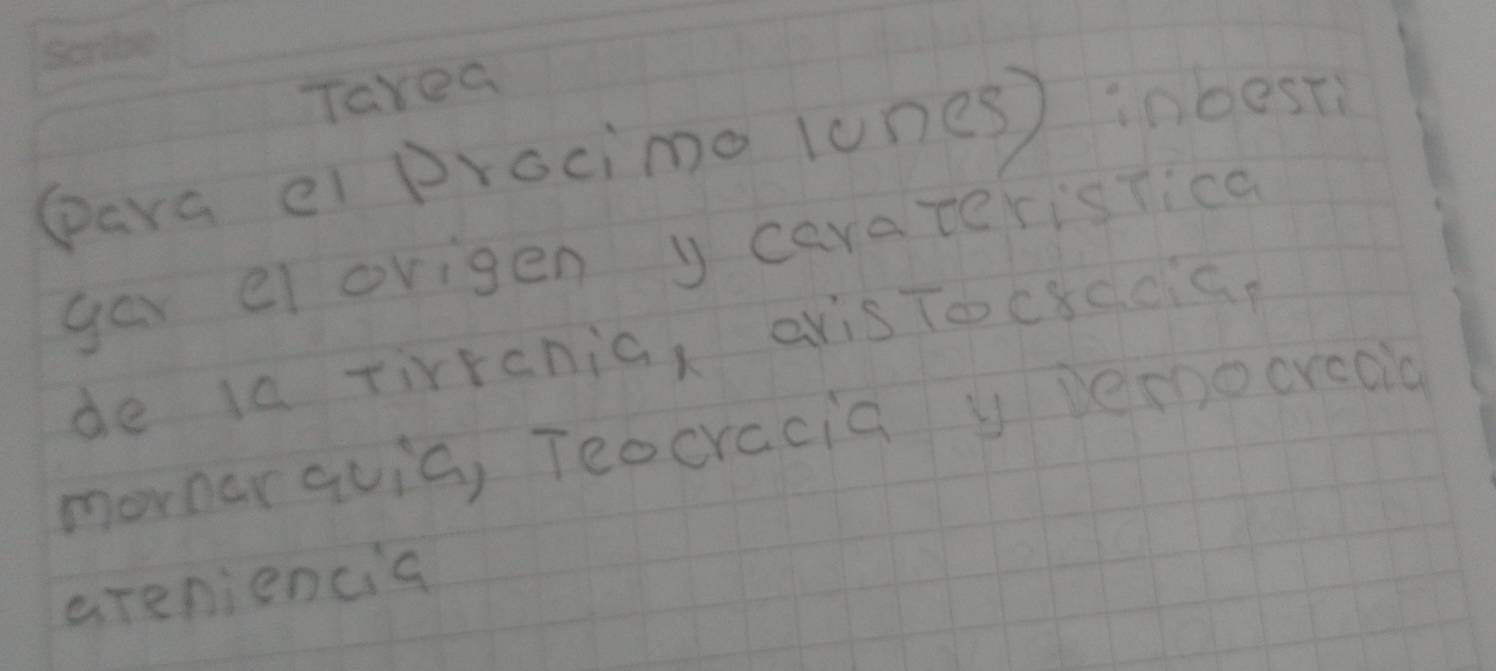 Scribe
Tarea
(para el Procimo lunes) inbesti
gar el origen y carateristica
de la tirrania, aristocracia,
mornarquia, Teocracia y Democracia
ateniencia